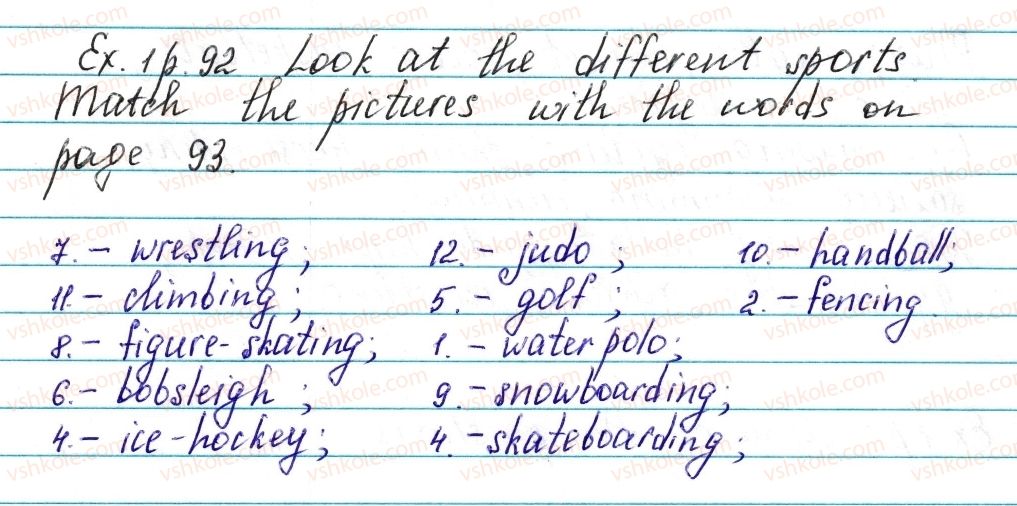 Ex. 1 p. 92 Look at the different sports.
Match the pictures with the words on
page 93.
7. – wrestling; 12. – judo; 10. – handball;
11. – climbing; 5. – golf; 2. – fencing.
8. – figure-skating; 1. – water polo;
6. – bobsleigh; 9. – snowboarding;
4. – ice-hockey; 4. – skateboarding;